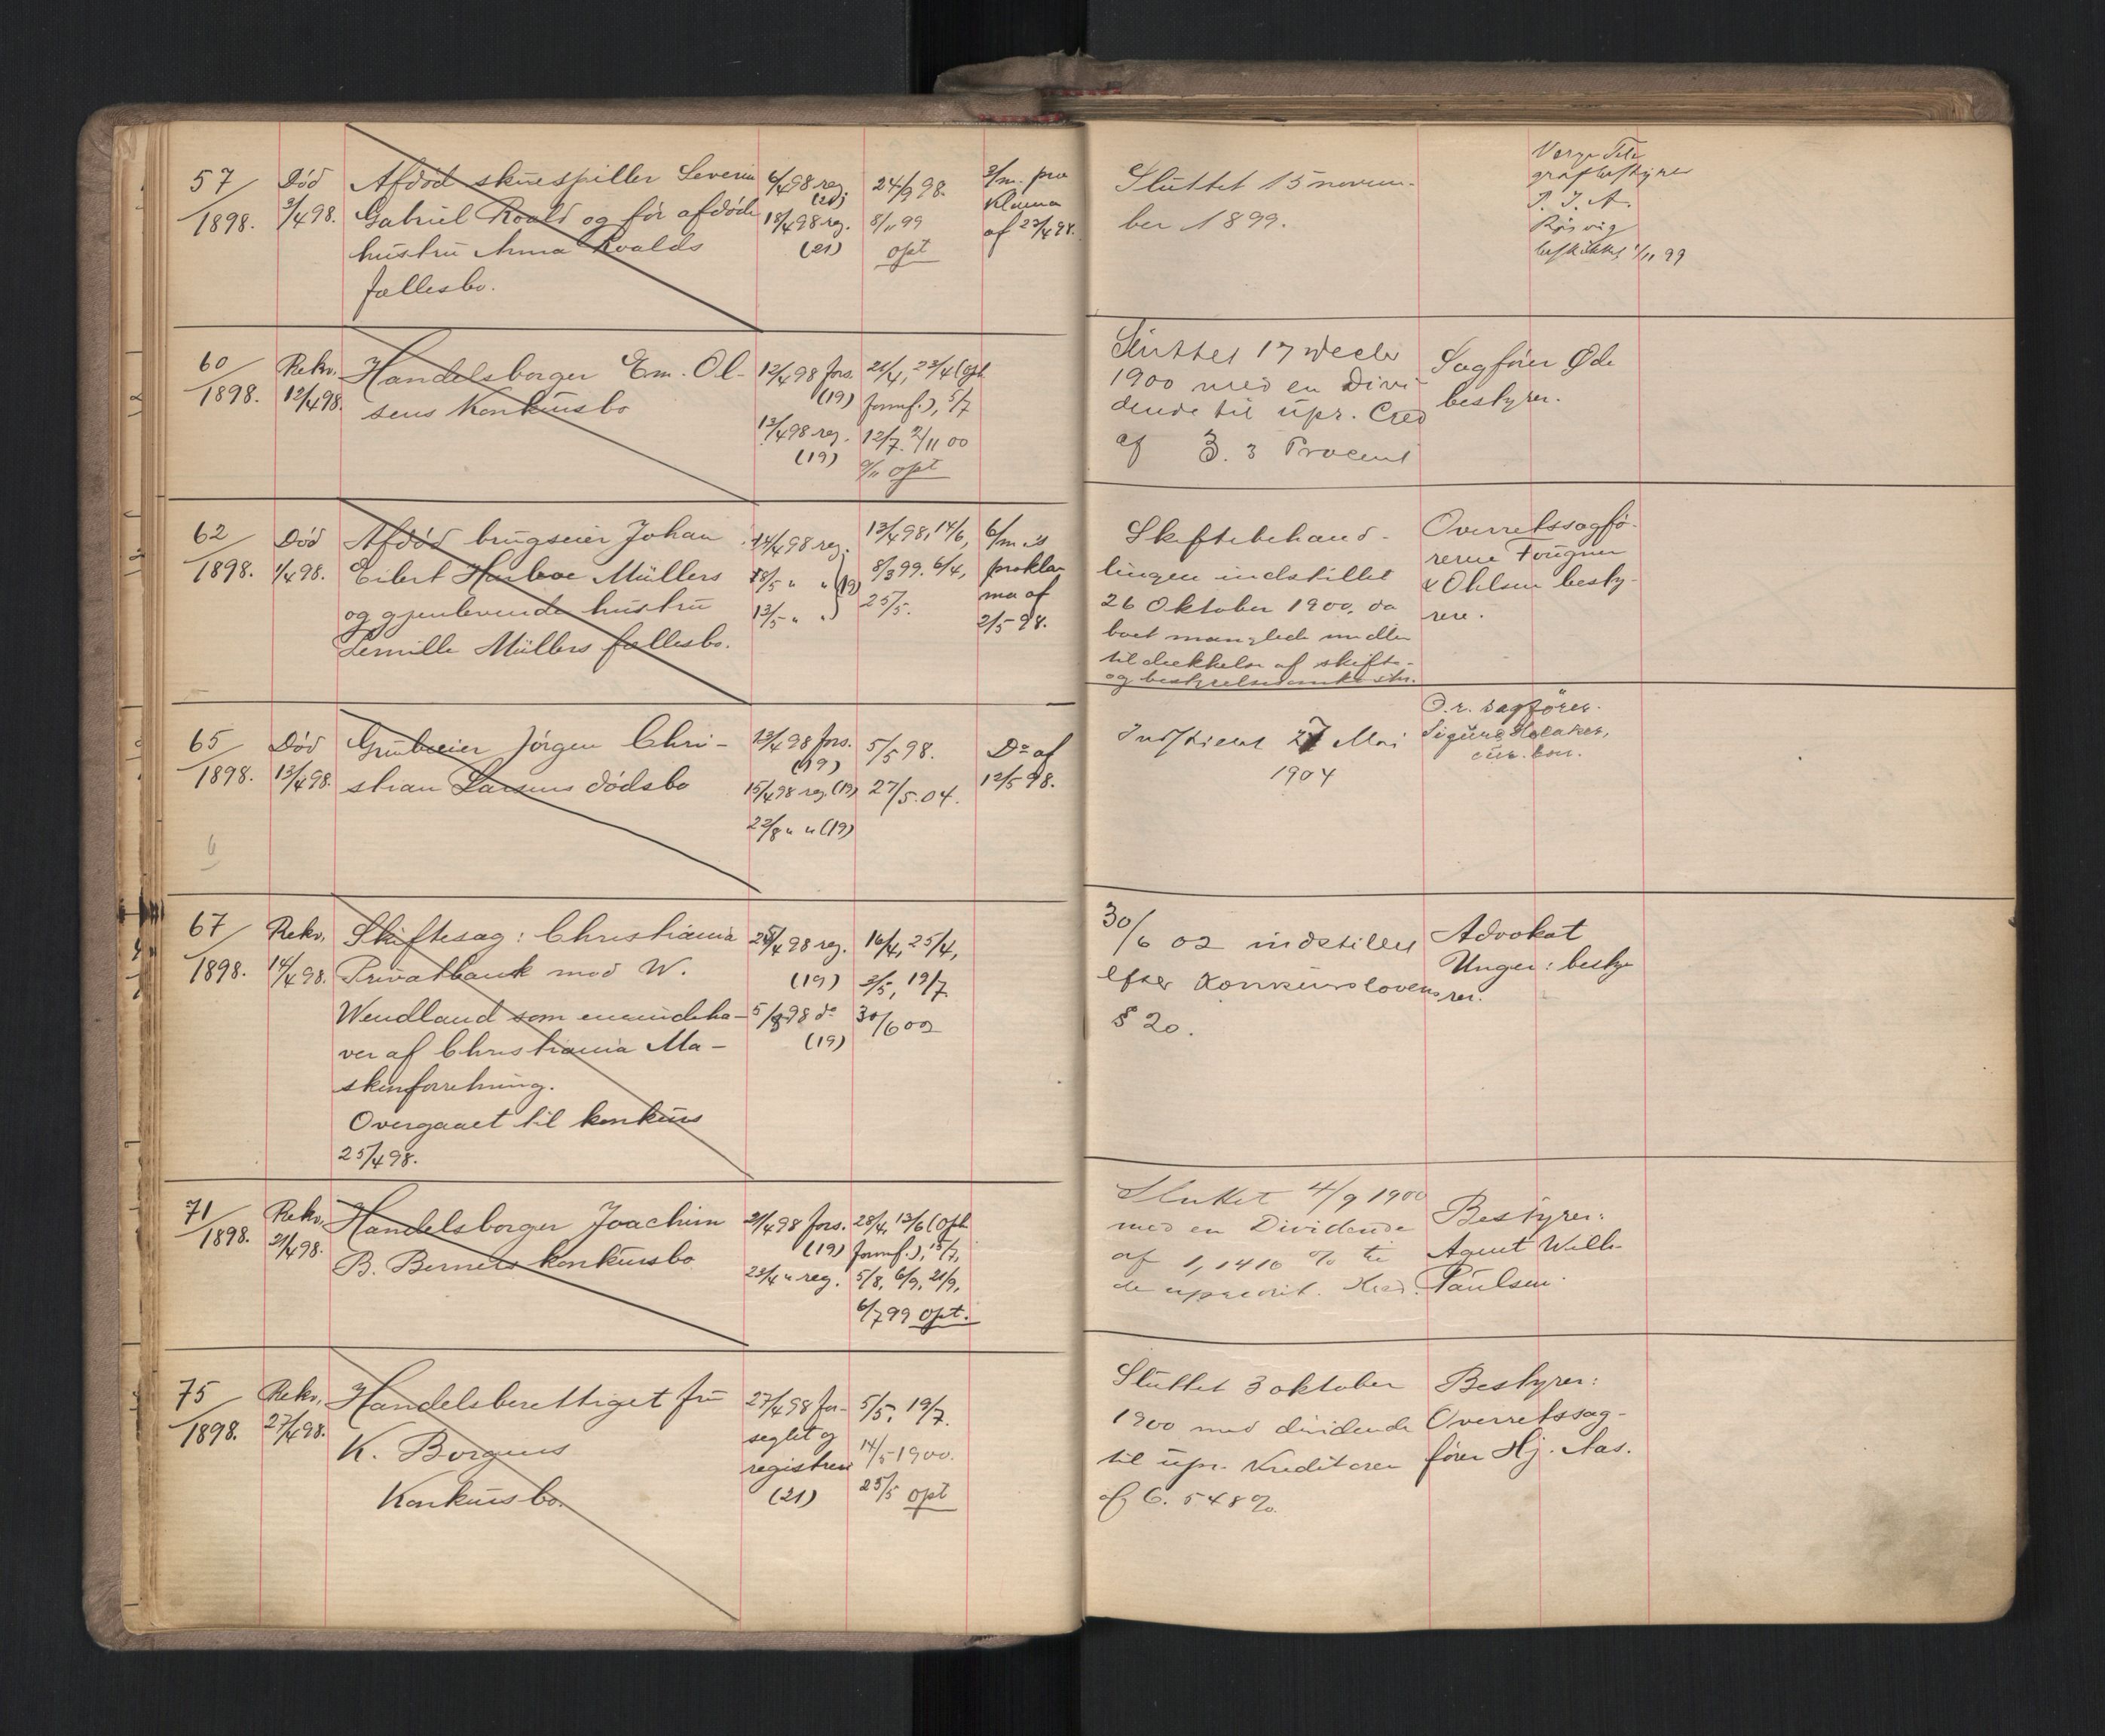 57/1898.
Død
3/4 98.
Afdød skuespiller Severin
Gabriel Roald og før afdøde
hustru Anna Roalds
fællesbo.
6/4 98 reg.
(21)
18/4 98 reg.
(21)
24/9 98.
8/11 99
opt
3/m. pro
klama
af 23/4 98.
Sluttet 15 novem-
ber 1899.
Verge Tele
grafbestyrer
P. J. A.
beskikket 1/11 99
60/1898.
Rekv.
12/4 98.
Handelsborger Em. Ol-
sens konkursbo
12/4 98 fors.
(19)
13/4 98 reg.
(19)
21/4, 23/4 (opb
formf.), 5/7
12/7. 2/11 00
9/11 opt
Sluttet 17 Decbr
1900 med en Divi-
dende til upr. Cred
af 3.3 Procent
Sagfører Øde
bestyrer.
62/1898.
Død
1/4 98.
Afdød brugseier Johan
Eilert Müllers
og gjenlevende hustru
Müllers fællesbo.
14/4 98 reg.
18/5 " " (19)
13/5 " "
13/4 98, 14/6,
8/3 99. 6/4,
25/5.
6/m.s
prokla-
ma af
2/5 98.
Skiftebehand-
lingen indstillet
26 Oktober 1900, da
boet manglede midler
til dækkelse af skifte-
og bestyrelsesomkostn.
Overretssagfø-
rerne Fougner
& Ohlsen besty-
rere.
65/1898.
Død
13/4 98.
Grubeeier Jørgen Chri-
stian Larsens dødsbo
13/4 98 fors.
(19)
15/4 98 reg. (19)
22/8 " " (19)
5/5 98.
27/5. 04.
Do af
12/5 98.
Indstillet 27 Mai
1904
O.r. sagfører
Sigurd
cur. bon.
6
67/1898.
Rekv.
14/4 98.
Skiftesag: Christiania
Privatbank mod W.
Wendland som eneindeha-
ver af Christiania Ma-
skinforretning.
Overgaaet til konkurs
25/4 98.
25/4 98 reg.
(19)
5/8 98 do
(19)
16/4, 25/4,
3/5, 19/7
30/6 02
30/6 02 indstillet
efter Konkurslovens
§ 20.
Advokat
Unger: besty-
rer.
71/1898.
Rekv.
21/4 98.
Handelsborger Joachim
B. Berners konkursbo
21/4 98 fors.
(19)
23/4 " reg.
28/4, 13/6 (opb
formf.), 13/7,
5/8, 6/9, 21/9,
6/7 99 opt.
Sluttet 4/9 1900
med en Dividende
af 1,1410 % til
de upriorit. Kred.
Bestyrer:
Agent Wilh.
Paulsen.
75/1898.
Rekv.
27/4 98.
Handelsberettiget fru
K. Borgens
Konkursbo.
27/4 98 for-
seglet og
registrert
(21)
5/5, 19/7.
14/5 1900.
25/5 opt
Sluttet 3 oktober
1900 med dividende
til upr. Kreditorer
af 6.548 %.
Bestyrer:
Overretssag-
fører Hj. Aas.